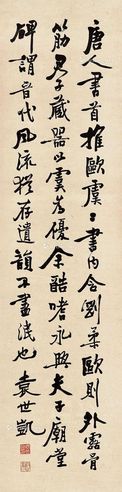 唐人書首推歐虞々書內含剛柔歐則外露骨
筋君子藏器以虞為優余酷嗜永興夫子廟堂
碑謂晉代風流猶存遺韻不盡泯也 袁世凱